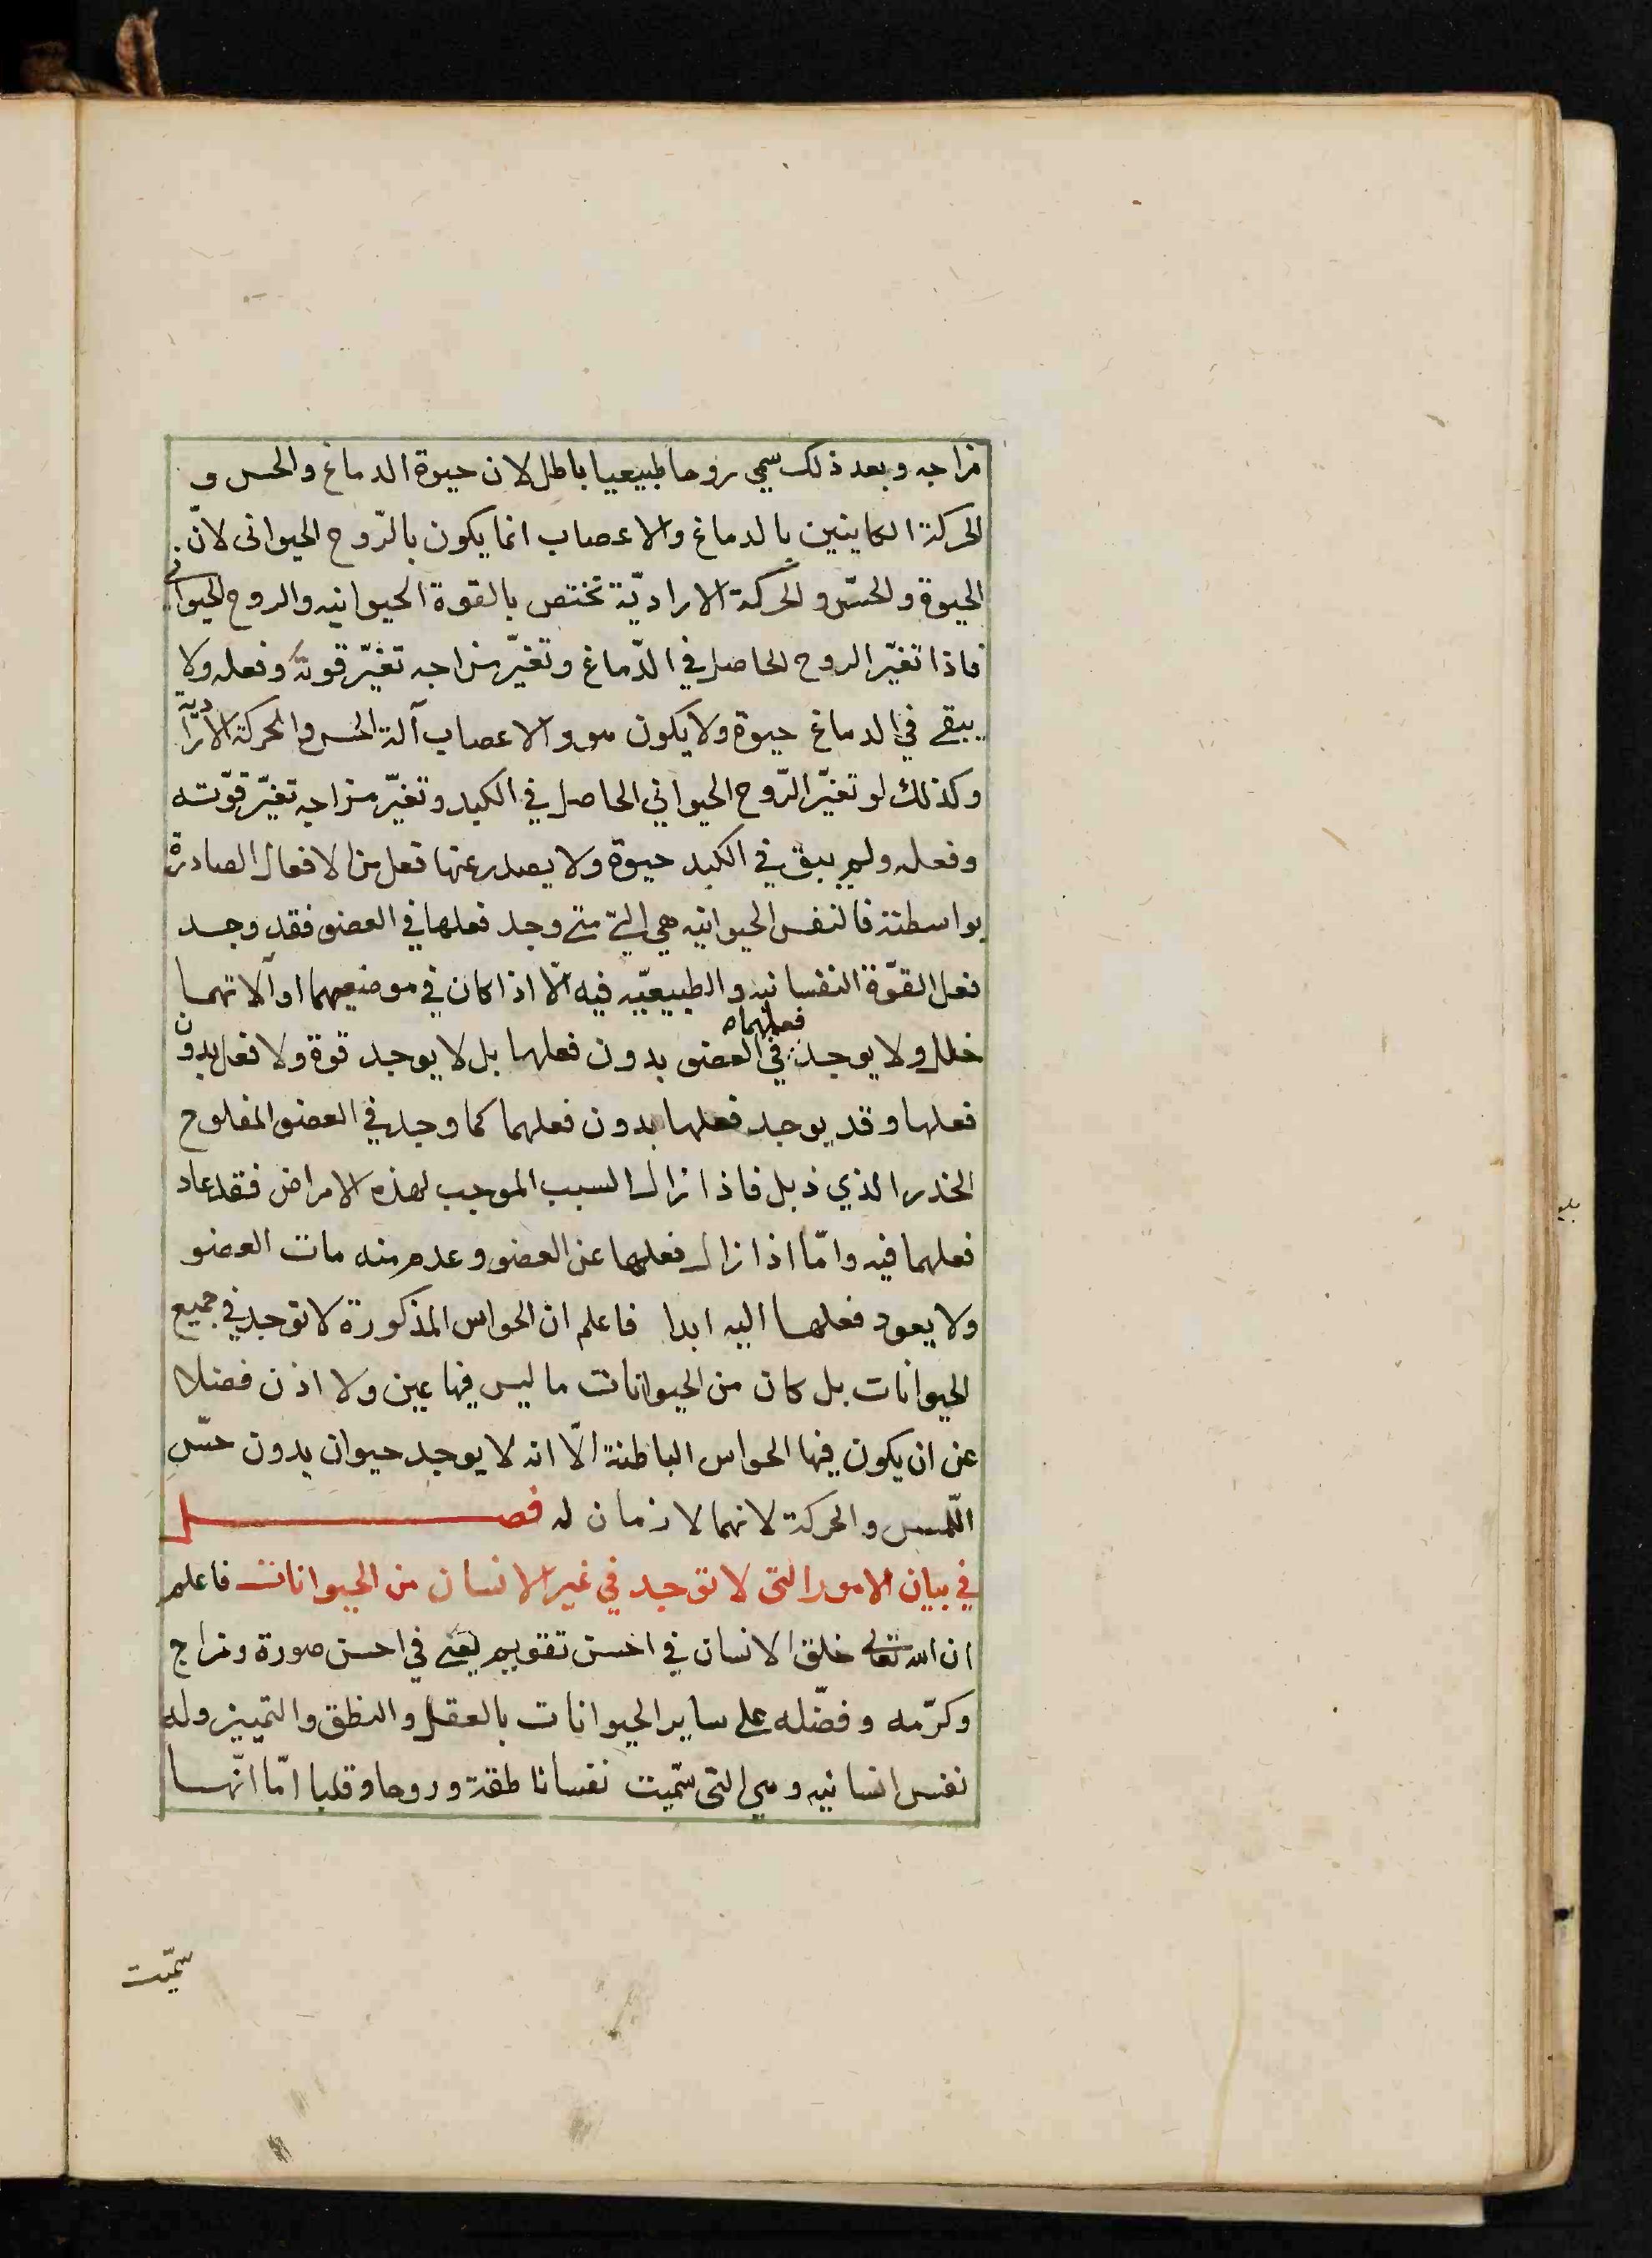 مزاجه وبعد ذلك سمي روحا طبيعيا باطل لان حيوة الدماغ والحس و
الحركة الكاينين بالدماغ والاعصاب انما يكون بالرّوح الحيوانى لانّ
الحيوة والحسّ والحركة الاراديّة تختص بالقوة الحيوانيه والروح الحيوانى
فاذا تغيّر الروح الحاصل في الدّماغ وتغيّر مزاجه تغيّر قوتهُ وفعله ولا
يبقى في الدماغ حيوة ولا يكون هو والاعصاب آلة الحس والحركة الاراديّة
وكذلك لو تغيّر الرّوح الحيواني الحاصل في الكبد وتغيّر مزاجه تغيّر قوّته
وفعله ولم يبق في الكبد حيوة ولا يصدر عنها فعل من الافعال الصادرة
بواسطته فالنفس الحيوانيه هي التي متى وجد فعلها في العضو فقد وجد
فعل القوّة النفسانيه والطبيعيّه فيه الّا اذا كان في موضعيهما او آلاتهما
خلل ولا يوجد فعلهما في العضو بدون فعلها بل لا يوجد قوة ولا فعل بدون
فعلها وقد يوجد فعلها بدون فعلهما كما وجد في العضو المفلوج
الخدر الذي ذبل فاذا زال السبب الموجب لهذه الامراض فقد عاد
فعلهما فيه وامّا اذا زال فعلها عن العضو وعدم منه مات العضو
ولا يعود فعلها اليه ابدا فاعلم ان الحواس المذكورة لا توجد في جميع
الحيوانات بل كان من الحيوانات ما ليس فيها عين ولا اذن فضلا
عن ان يكون فيها الحواس الباطنة الّا انه لا يوجد حيوان بدون حسّ
اللّمس والحركة لانهما لازمان له فصل
في بيان الامور التى لا توجد في غير الانسان من الحيوانات فاعلم
ان الله تعالى خلق الانسان في احسن تقويم يعنى في احسن صورة ومزاج
وكرّمه وفضّله على ساير الحيوانات بالعقل والنطق والتمييز وله
نفس انسانيه وهي التى سمّيت نفسا ناطقة وروحا وقلبا امّا انّها
سمّيت